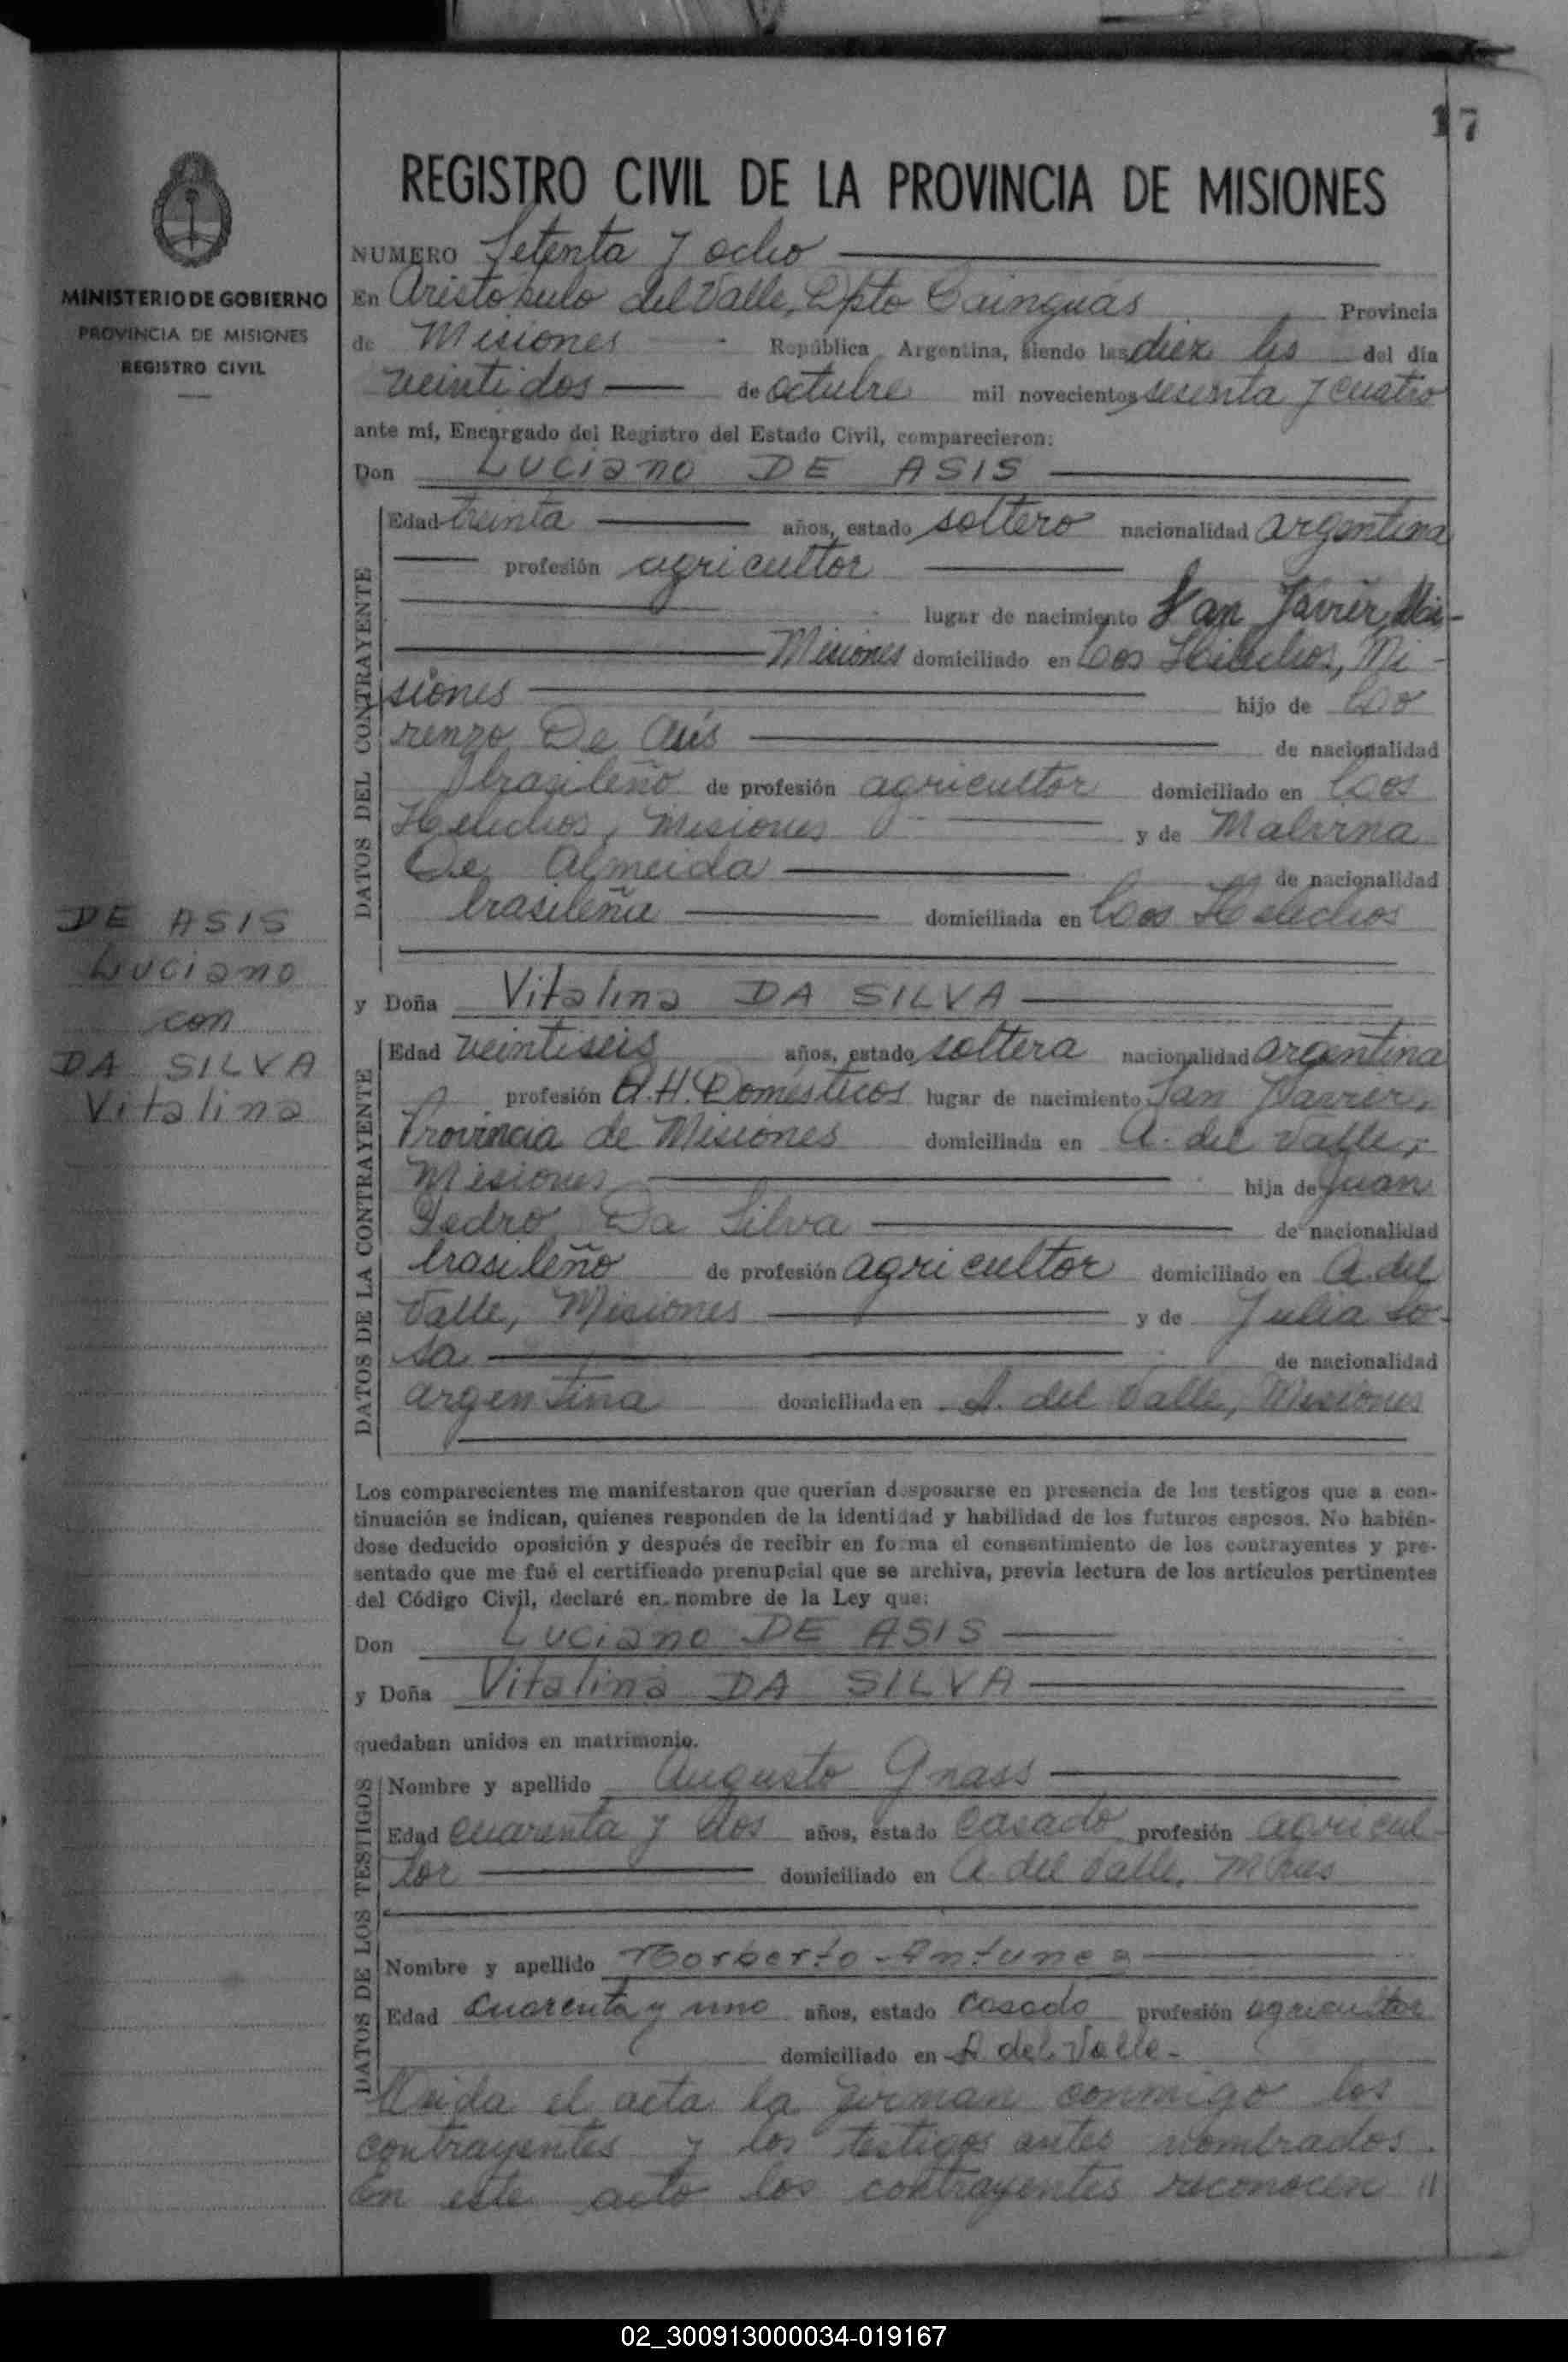 17
REGISTRO CIVIL DE LA PROVINCIA DE MISIONES
MINISTERIO DE GOBIERNO
PROVINCIA DE MISIONES
REGISTRO CIVIL
NUMERO Setenta y ocho
En Aristobulo del Valle, Dpto Cainguás Provincia
de Misiones República Argentina, siendo las diez hs del día
veintidos de octubre mil novecientos sesenta y cuatro
ante mí, Encargado del Registro del Estado Civil, comparecieron:
Don Luciano DE ASIS
DATOS DEL CONTRAYENTE
Edad treinta años, estado soltero nacionalidad argentina
profesión agricultor
lugar de nacimiento San Javier, Mi-
Misiones domiciliado en Los Helechos, Mi-
siones hijo de Lo
renzo De Asís de nacionalidad
brasileño de profesión agricultor domiciliado en Los
Helechos, Misiones y de Malvina
De Almeida de nacionalidad
brasileña domiciliada en Los Helechos
DE ASIS
Luciano
con
DA SILVA
Vitalina
y Doña Vitalina DA SILVA
DATOS DE LA CONTRAYENTE
Edad veintiseis años, estado soltera nacionalidad argentina
profesión Q.H. Domésticos lugar de nacimiento San Javier,
Provincia de Misiones domiciliada en A. del Valle,
Misiones hija de Juan
Pedro Da Silva de nacionalidad
brasileño de profesión agricultor domiciliado en A. del
Valle, Misiones y de Julia So-
sa de nacionalidad
argentina domiciliada en A. del Valle, Misiones
Los comparecientes me manifestaron que querían desposarse en presencia de los testigos que a con-
tinuación se indican, quienes responden de la identidad y habilidad de los futuros esposos. No habién-
dose deducido oposición y después de recibir en forma el consentimiento de los contrayentes y pre-
sentado que me fué el certificado prenupcial que se archiva, previa lectura de los artículos pertinentes
del Código Civil, declaré en nombre de la Ley que:
Don Luciano DE ASIS
y Doña Vitalina DA SILVA
quedaban unidos en matrimonio.
DATOS DE LOS TESTIGOS
Nombre y apellido Augusto Gnass
Edad cuarenta y dos años, estado casado profesión agricul-
tor domiciliado en A. del Valle, Mnes
Nombre y apellido Norberto Antunez
Edad cuarenta y uno años, estado casado profesión agricultor
domiciliado en A. del Valle-
Leida el acta la firman conmigo los
contrayentes y los testigos antes nombrados.
En este acto los contrayentes reconocen //
02_300913000034-019167